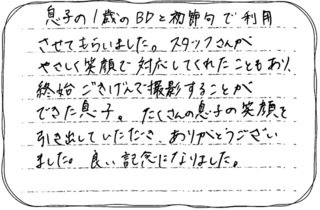 息子の1歳のBDと初節句で利用
させてもらいました。スタッフさんが
やさしく笑顔で対応してくれたこともあり、
終始ごきげんで撮影することが
できた息子。たくさんの息子の笑顔を
引き出していただき、ありがとうござい
ました。良い記念になりました。